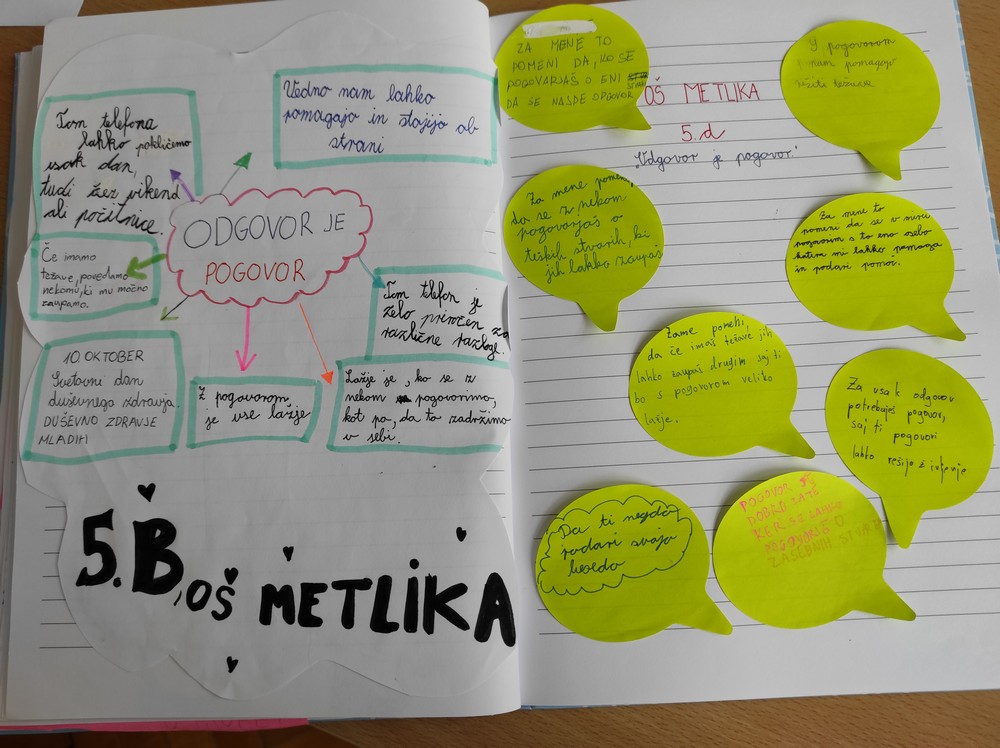 Tom telefona
lahko pokličemo
vsak dan,
tudi čez vikend
ali počitnice.
Vedno nam lahko
pomagajo in stojijo ob
strani
ODGOVOR JE
POGOVOR
Če imamo
težave, povedamo
nekomu, ki mu močno
zaupamo.
Tom telefon je
zelo priročen za
različne razloge.
10. OKTOBER
Svetovni dan
duševnega zdravja.
DUŠEVNO ZDRAVJE
MLADIH
Z pogovorom,
je vse lažje
Lažje je, ko se z
nekom pogovorimo,
kot pa, da to zadržimo
v sebi.
5.B, OŠ METLIKA
ZA MENE TO
POMENI DA, KO SE
POGOVARJAŠ O ENI
STVARI
DA SE NAJDE ODGOVOR
OŠ METLIKA
5.d
"Odgovor je pogovor."
S pogovorom
nam pomagajo
rešiti težave
Za mene pomeni,
da se z nekom
pogovarjaš o
težkih stvarih, ki
jih lahko zaupaš
Za mene to
pomeni da se v miru
pogovorim s to eno osebo
katera mi lahko pomaga
in podari pomoč.
Zame pomeni,
da če imaš težave jih
lahko zaupaš drugim saj ti
bo s pogovorom veliko
lažje.
Za vsak odgovor
potrebuješ pogovor,
saj ti pogovori
lahko rešijo življenje
Da ti nekdo
podari svojo
besedo
POGOVOR
DOBRO ZATE
KER SE LAHKO
POGOVORIŠ O
ZASEBNIH STVAREH